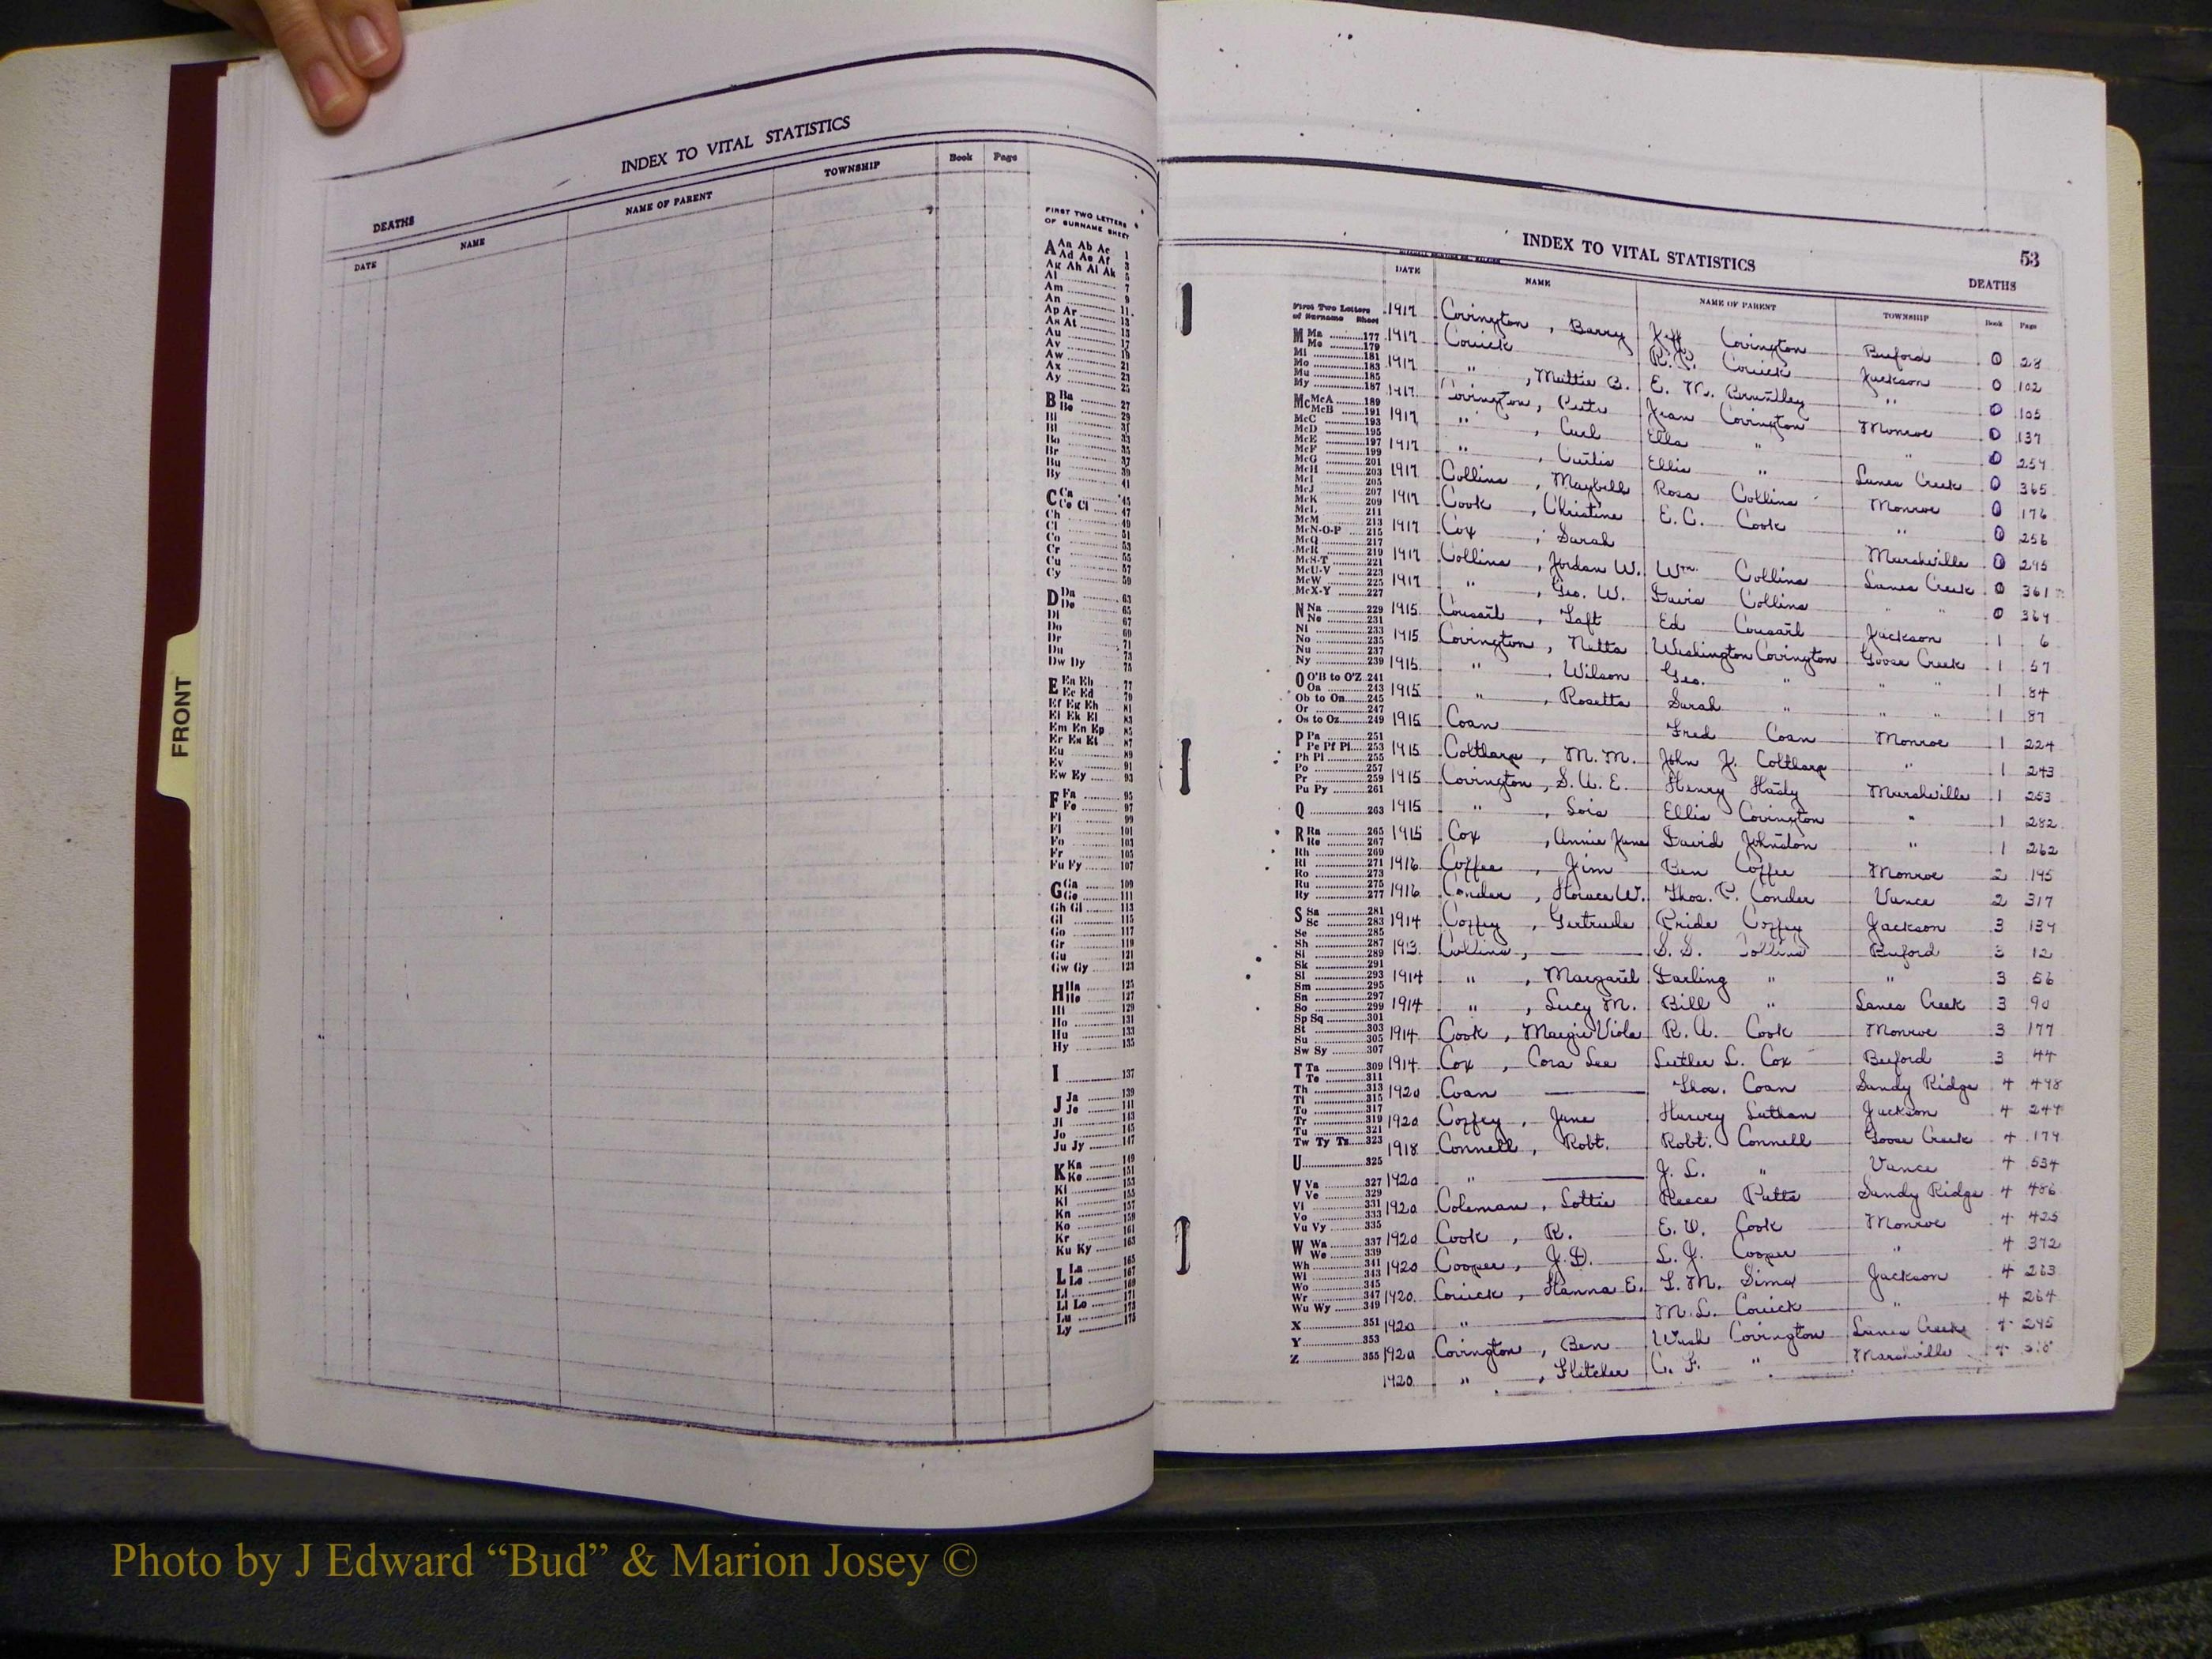 INDEX TO VITAL STATISTICS
DEATHS
DATE NAME NAME OF PARENT TOWNSHIP Book Page
FIRST TWO LETTERS
OF SURNAME SHEET
A Aa Ab Ac 1
Ad Ae Af 3
Ag Ah Ai Ak 5
Al 7
Am 9
An 11
Ap Ar
As At
Au
Av
Aw
Ax
Ay
B Ba 27
Be 29
Bi 31
Bl
Bo
Br
Bu
By 41
C Ca 45
Ce Ci 47
Ch 49
Cl 51
Co 53
Cr 55
Cu 57
Cy 59
D Da 63
De 65
Di 67
Do 69
Dr 71
Du 73
Dw Dy 75
E Ea Eb 77
Ec Ed 79
Ef Eg Eh 81
Ei Ek El 83
Em En Ep 85
Er Es Et 87
Eu 89
Ev 91
Ew Ey 93
F Fa 95
Fe 97
Fi 99
Fl 101
Fo 103
Fr 105
Fu Fy 107
G Ga 109
Ge 111
Gh Gi 113
Gl 115
Go 117
Gr 119
Gu 121
Gw Gy 123
H Ha 125
He 127
Hi 129
Ho 131
Hu 133
Hy 135
I 137
J Ja 139
Je 141
Ji 143
Jo 145
Ju Jy 147
K Ka 149
Ke 151
Ki 153
Kl 155
Kn 157
Ko 159
Kr 161
Ku Ky 163
L La 165
Le 167
Li 169
Ll Lo 171
Lu 173
Ly 175
INDEX TO VITAL STATISTICS 53
DEATHS
DATE NAME NAME OF PARENT TOWNSHIP Book Page
First Two Letters
of Surname Sheet
M Ma 177
Me 179
Mi 181
Mo 183
Mu 185
My 187
Mc McA 189
McB 191
McC 193
McD 195
McE 197
McF 199
McG 201
McH 203
McI 205
McJ 207
McK 209
McL 211
McM 213
McN-O-P 215
McQ 217
McR 219
McS-T 221
McU-V 223
McW 225
McX-Y 227
N Na 229
Ne 231
Ni 233
No 235
Nu 237
Ny 239
O O'B to O'Z 241
Oa 243
Ob to On 245
Or 247
Os to Oz 249
P Pa 251
Pe Pf Pi 253
Ph Pl 255
Po 257
Pr 259
Pu Py 261
Q 263
R Ra 265
Re 267
Rh 269
Ri 271
Ro 273
Ru 275
Ry 277
S Sa 281
Sc 283
Se 285
Sh 287
Si 289
Sk 291
Sl 293
Sm 295
Sn 297
So 299
Sp Sq 301
St 303
Su 305
Sw Sy 307
T Ta 309
Te 311
Th 313
Ti 315
To 317
Tr 319
Tu 321
Tw Ty Tz 323
U 325
V Va 327
Ve 329
Vi 331
Vo 333
Vu Vy 335
W Wa 337
We 339
Wh 341
Wi 343
Wo 345
Wr 347
Wu Wy 349
X 351
Y 353
Z 355
1917 Covington, Barry Jeff Covington Buford 0 28
1917 Couick R. P. Couick Jackson 0 102
1917 " , Mattie B. E. M. Brantley " 0 105
1917 Covington, Pete Jean Covington Monroe 0 137
1917 " , Carl Ella " " 0 254
1917 " , Curtis Ellis " Lanes Creek 0 365
1917 Collins, Maybell Rosa Collins Monroe 0 176
1917 Cook, Christine E. C. Cook " 0 256
1917 Cox, Sarah Marshville 0 295
1917 Collins, Jordan W. Wm. Collins Lanes Creek 0 361
1917 " , Geo. W. Davis Collins " " 0 364
1915 Cousart, Taft Ed Cousart Jackson 1 6
1915 Covington, Netta Washington Covington Goose Creek 1 57
1915 " , Wilson Geo. " " " 1 84
1915 " , Rosetta Sarah " " " 1 87
1915 Coan Fred Coan Monroe 1 224
1915 Coltharp, M. M. John J. Coltharp " 1 243
1915 Covington, S. A. E. Henry Hasty Marshville 1 253
1915 " , Lois Ellis Covington " 1 282
1915 Cox, Annie Jane David Johnston " 1 262
1916 Coffee, Jim Ben Coffee Monroe 2 195
1916 Conder, Horace W. Thos. P. Conder Vance 2 317
1914 Coffey, Gertrude Pride Coffey Jackson 3 134
1913 Collins, — S. S. Collins Buford 3 12
1914 " , Margaret Darling " " 3 56
1914 " , Lucy M. Bill " Lanes Creek 3 90
1914 Cook, Margie Viola R. A. Cook Monroe 3 177
1914 Cox, Cora Lee Luther L. Cox Buford 3 44
1920 Coan — Thos. Coan Sandy Ridge 4 498
1920 Coffey, Jane Harvey Lathan Jackson 4 244
1918 Connell, Robt. Robt. Connell Goose Creek 4 174
1920 " — J. L. " Vance 4 534
1920 Coleman, Lottie Reece Potts Sandy Ridge 4 486
1920 Cook, R. E. W. Cook Monroe 4 425
1920 Cooper, J. D. L. J. Cooper " 4 372
1920 Couick, Hanna E. T. M. Sims Jackson 4 263
1920 " — M. L. Couick " 4 264
1920 Covington, Ben Wash Covington Lanes Creek 4 295
1920 " , Fletcher C. F. " Marshville 4
FRONT
Photo by J Edward “Bud” & Marion Josey ©